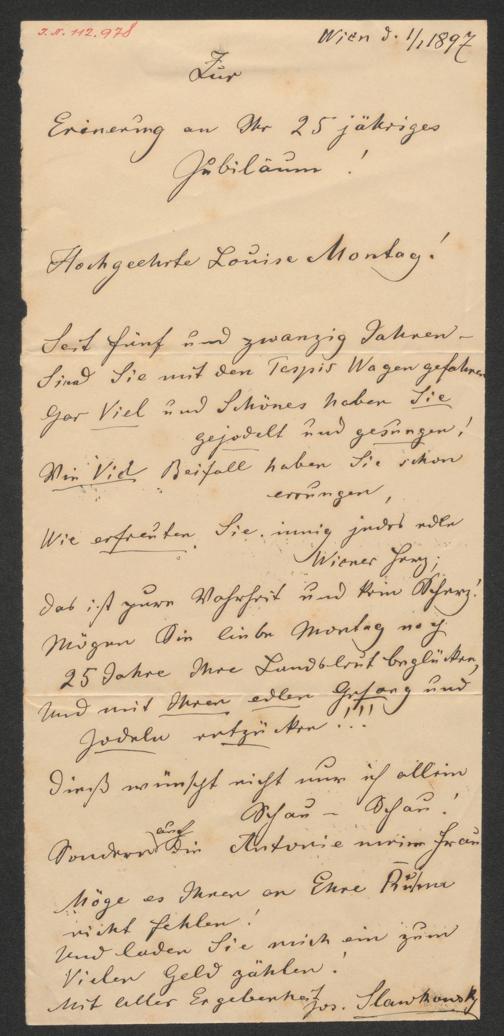 I.N. 112.978
Wien d. 1/1 1897
Zur
Erinerung an Ihr 25 jähriges
Jubiläum!
Hochgeehrte Louise Montag!
Seit fünf und zwanzig Jahren –
Sind Sie mit den Tespis Wagen gefahren
Gar Viel und Schönes haben Sie
gejodelt und gesungen!
Wie Viel Beifall haben Sie schon
errungen,
Wie erfreuten Sie innig jedes edle
Wiener Herz;
das ist pure Wahrheit und kein Scherz!
Mögen Sie liebe Montag noch
25 Jahre Ihre Landsleut beglücken,
Und mit Ihren edlen Gesang und
Jodeln entzücken!!!
Dieß wünscht nicht nur ich allein
Schau – Schau!
Sondern auch die Antonie meine Frau
Möge es Ihnen an Ehre Ruhm
nicht fehlen!
Und laden Sie mich ein zum
Vielen Geld zählen!
Mit aller Ergebenheit
Jos. Slawkowsky